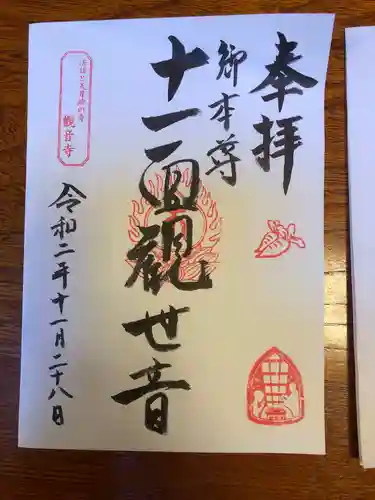 奉拝
御本尊
十一面観世音
観音寺
令和二年十一月二十八日